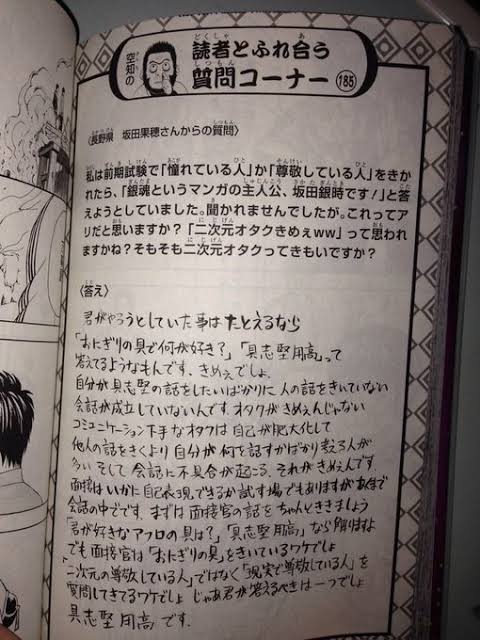 空知の
読者とふれ合う
質問コーナー
185
〈長野県 坂田果穂さんからの質問〉
私は前期試験で「憧れている人」か「尊敬している人」をきか
れたら、「銀魂というマンガの主人公、坂田銀時です!」と答
えようとしていました。聞かれませんでしたが。これってア
リだと思いますか?「二次元オタクきめぇww」って思われ
ますかね?そもそも二次元オタクってきもいですか?
〈答え〉
君がやろうとしていた事はたとえるなら
「おにぎりの具で何が好き?」「具志堅用高」って
答えてるようなもんです。きめぇでしょ。
自分が具志堅の話をしたいばかりに人の話をきいていない
会話が成立していないんです。オタクがきめぇんじゃない
コミュニケーション下手なオタクは自己が肥大化して
他人の話をきくより自分が何を話すかばかり考える人が
多い そして会話に不具合が起こる。それがきめぇんです。
面接はいかに自己表現できるか試す場でもありますがあくまで
会話の中でです。まずは面接官の話をちゃんとききましょう
「君が好きなアフロの具は?」「具志堅用高」なら解りますよ
でも面接官は「おにぎりの具」をきいているワケでしょ
「二次元の尊敬している人」ではなく「現実で尊敬している人」を
質問してきてるワケでしょ じゃあ君が答えるべきは一つでしょ
具志堅用高です。